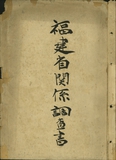 福建省関係調査書